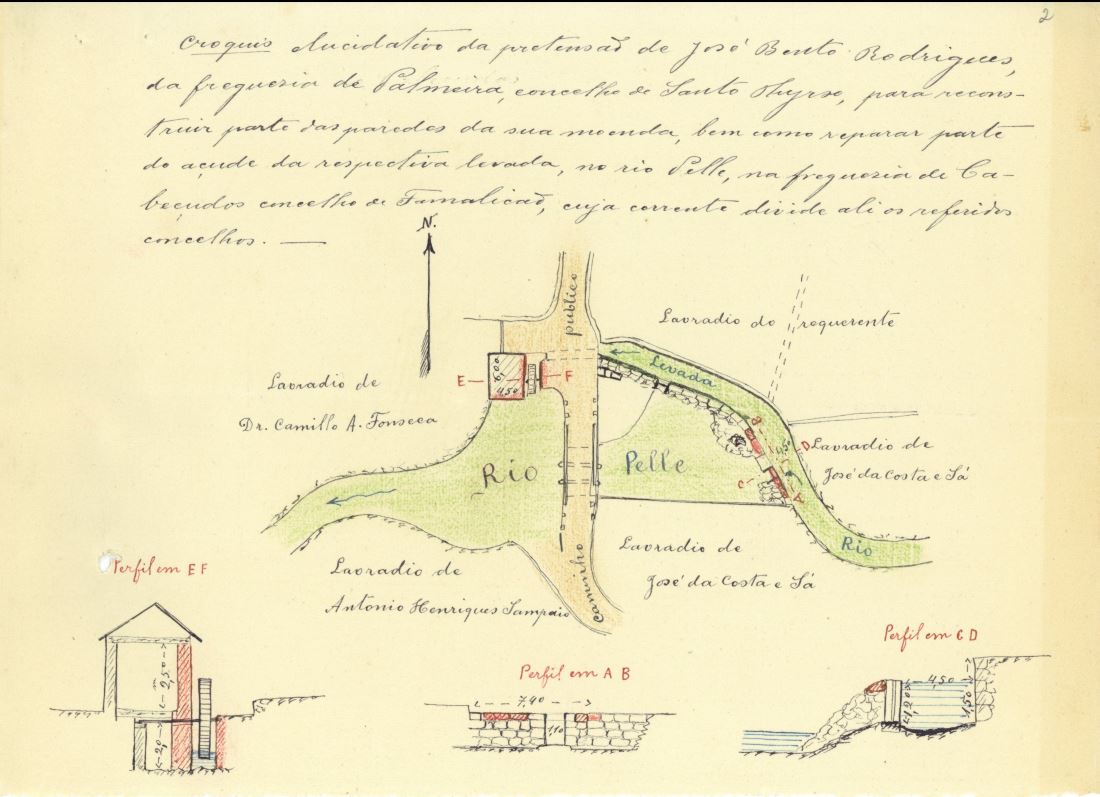 2
Croquis elucidativo da pretensaõ de José Bento Rodrigues,
da freguezia de Palmeira, concelho de Santo Thyrso, para recons-
truir parte das paredes da sua moenda, bem como reparar parte
do açude da respectiva levada, no rio Pelle, na freguezia de Ca-
beçudos concelho de Famalicaõ, cuja corrente divide ali os referidos
concelhos. —
N.
publico
Lavradio do requerente
Levada
E
6,00
4,50
F
Lavradio de
Dr. Camillo A. Fonseca
B
4,50
D
Lavradio de
José da Costa e Sá
Rio Pelle
C
A
Rio
Lavradio de
José da Costa e Sá
Caminho
Lavradio de
Antonio Henriques Sampaio
Perfil em E F
2,50
Perfil em A B
7,40
1,10
Perfil em C D
4,50
1,20
1,50